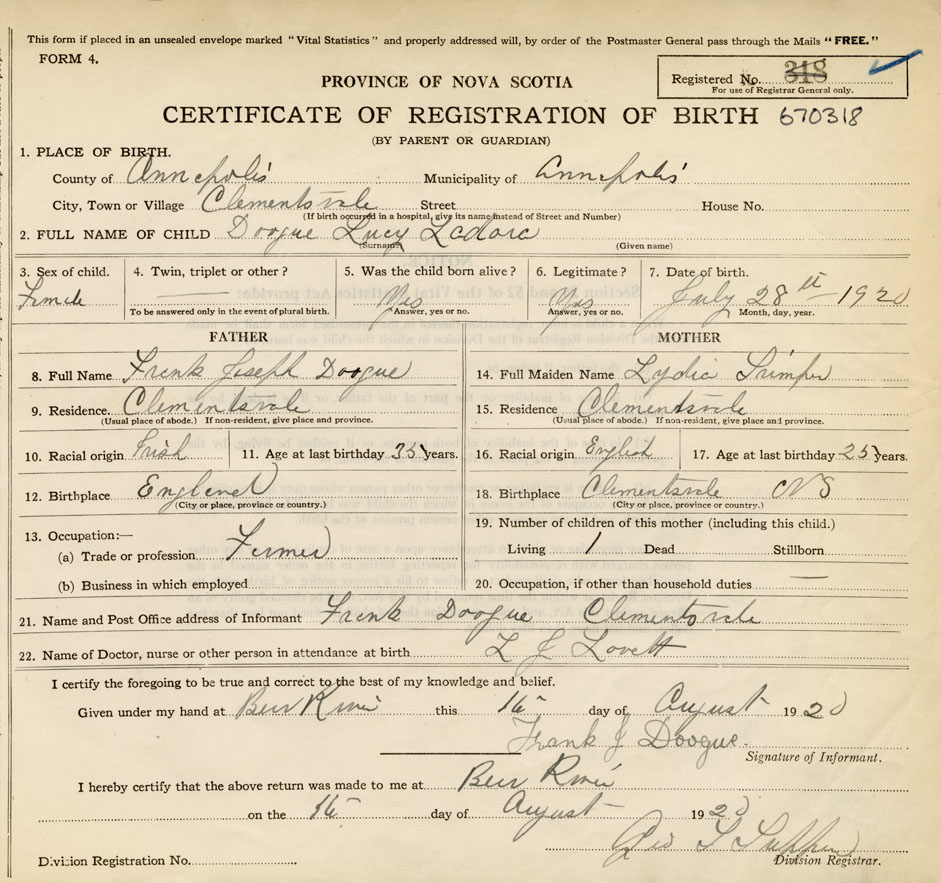 This form if placed in an unsealed envelope marked "Vital Statistics" and properly addressed will, by order of the Postmaster General pass through the Mails "FREE."
FORM 4.
Registered No. 318
For use of Registrar General only.
PROVINCE OF NOVA SCOTIA
CERTIFICATE OF REGISTRATION OF BIRTH 670318
(BY PARENT OR GUARDIAN)
1. PLACE OF BIRTH.
County of Annapolis Municipality of Annapolis
City, Town or Village Clementsvale Street House No.
(If birth occurred in a hospital, give its name instead of Street and Number)
2. FULL NAME OF CHILD Doogue Lucy Ladora
(Surname) (Given name)
3. Sex of child. 4. Twin, triplet or other? 5. Was the child born alive? 6. Legitimate? 7. Date of birth.
Female Yes Yes July 28th 1920
To be answered only in the event of plural birth. Answer, yes or no. Answer, yes or no. Month, day, year.
FATHER MOTHER
8. Full Name Frank Joseph Doogue 14. Full Maiden Name Lydia Trimper
9. Residence. Clementsvale 15. Residence Clementsvale
(Usual place of abode.) If non-resident, give place and province. (Usual place of abode.) If non-resident, give place and province.
10. Racial origin Irish 11. Age at last birthday 35 years. 16. Racial origin English 17. Age at last birthday 25 years.
12. Birthplace England 18. Birthplace Clementsvale NS
(City or place, province or country.) (City or place, province or country.)
13. Occupation:— 19. Number of children of this mother (including this child.)
(a) Trade or profession Farmer Living 1 Dead Stillborn
(b) Business in which employed 20. Occupation, if other than household duties —
21. Name and Post Office address of Informant Frank Doogue Clementsvale
22. Name of Doctor, nurse or other person in attendance at birth L J Lovett
I certify the foregoing to be true and correct to the best of my knowledge and belief.
Given under my hand at Bear River this 16 day of August 1920
Frank J Doogue.
Signature of Informant.
I hereby certify that the above return was made to me at Bear River
on the 16 day of August 1920
Division Registration No. Division Registrar.